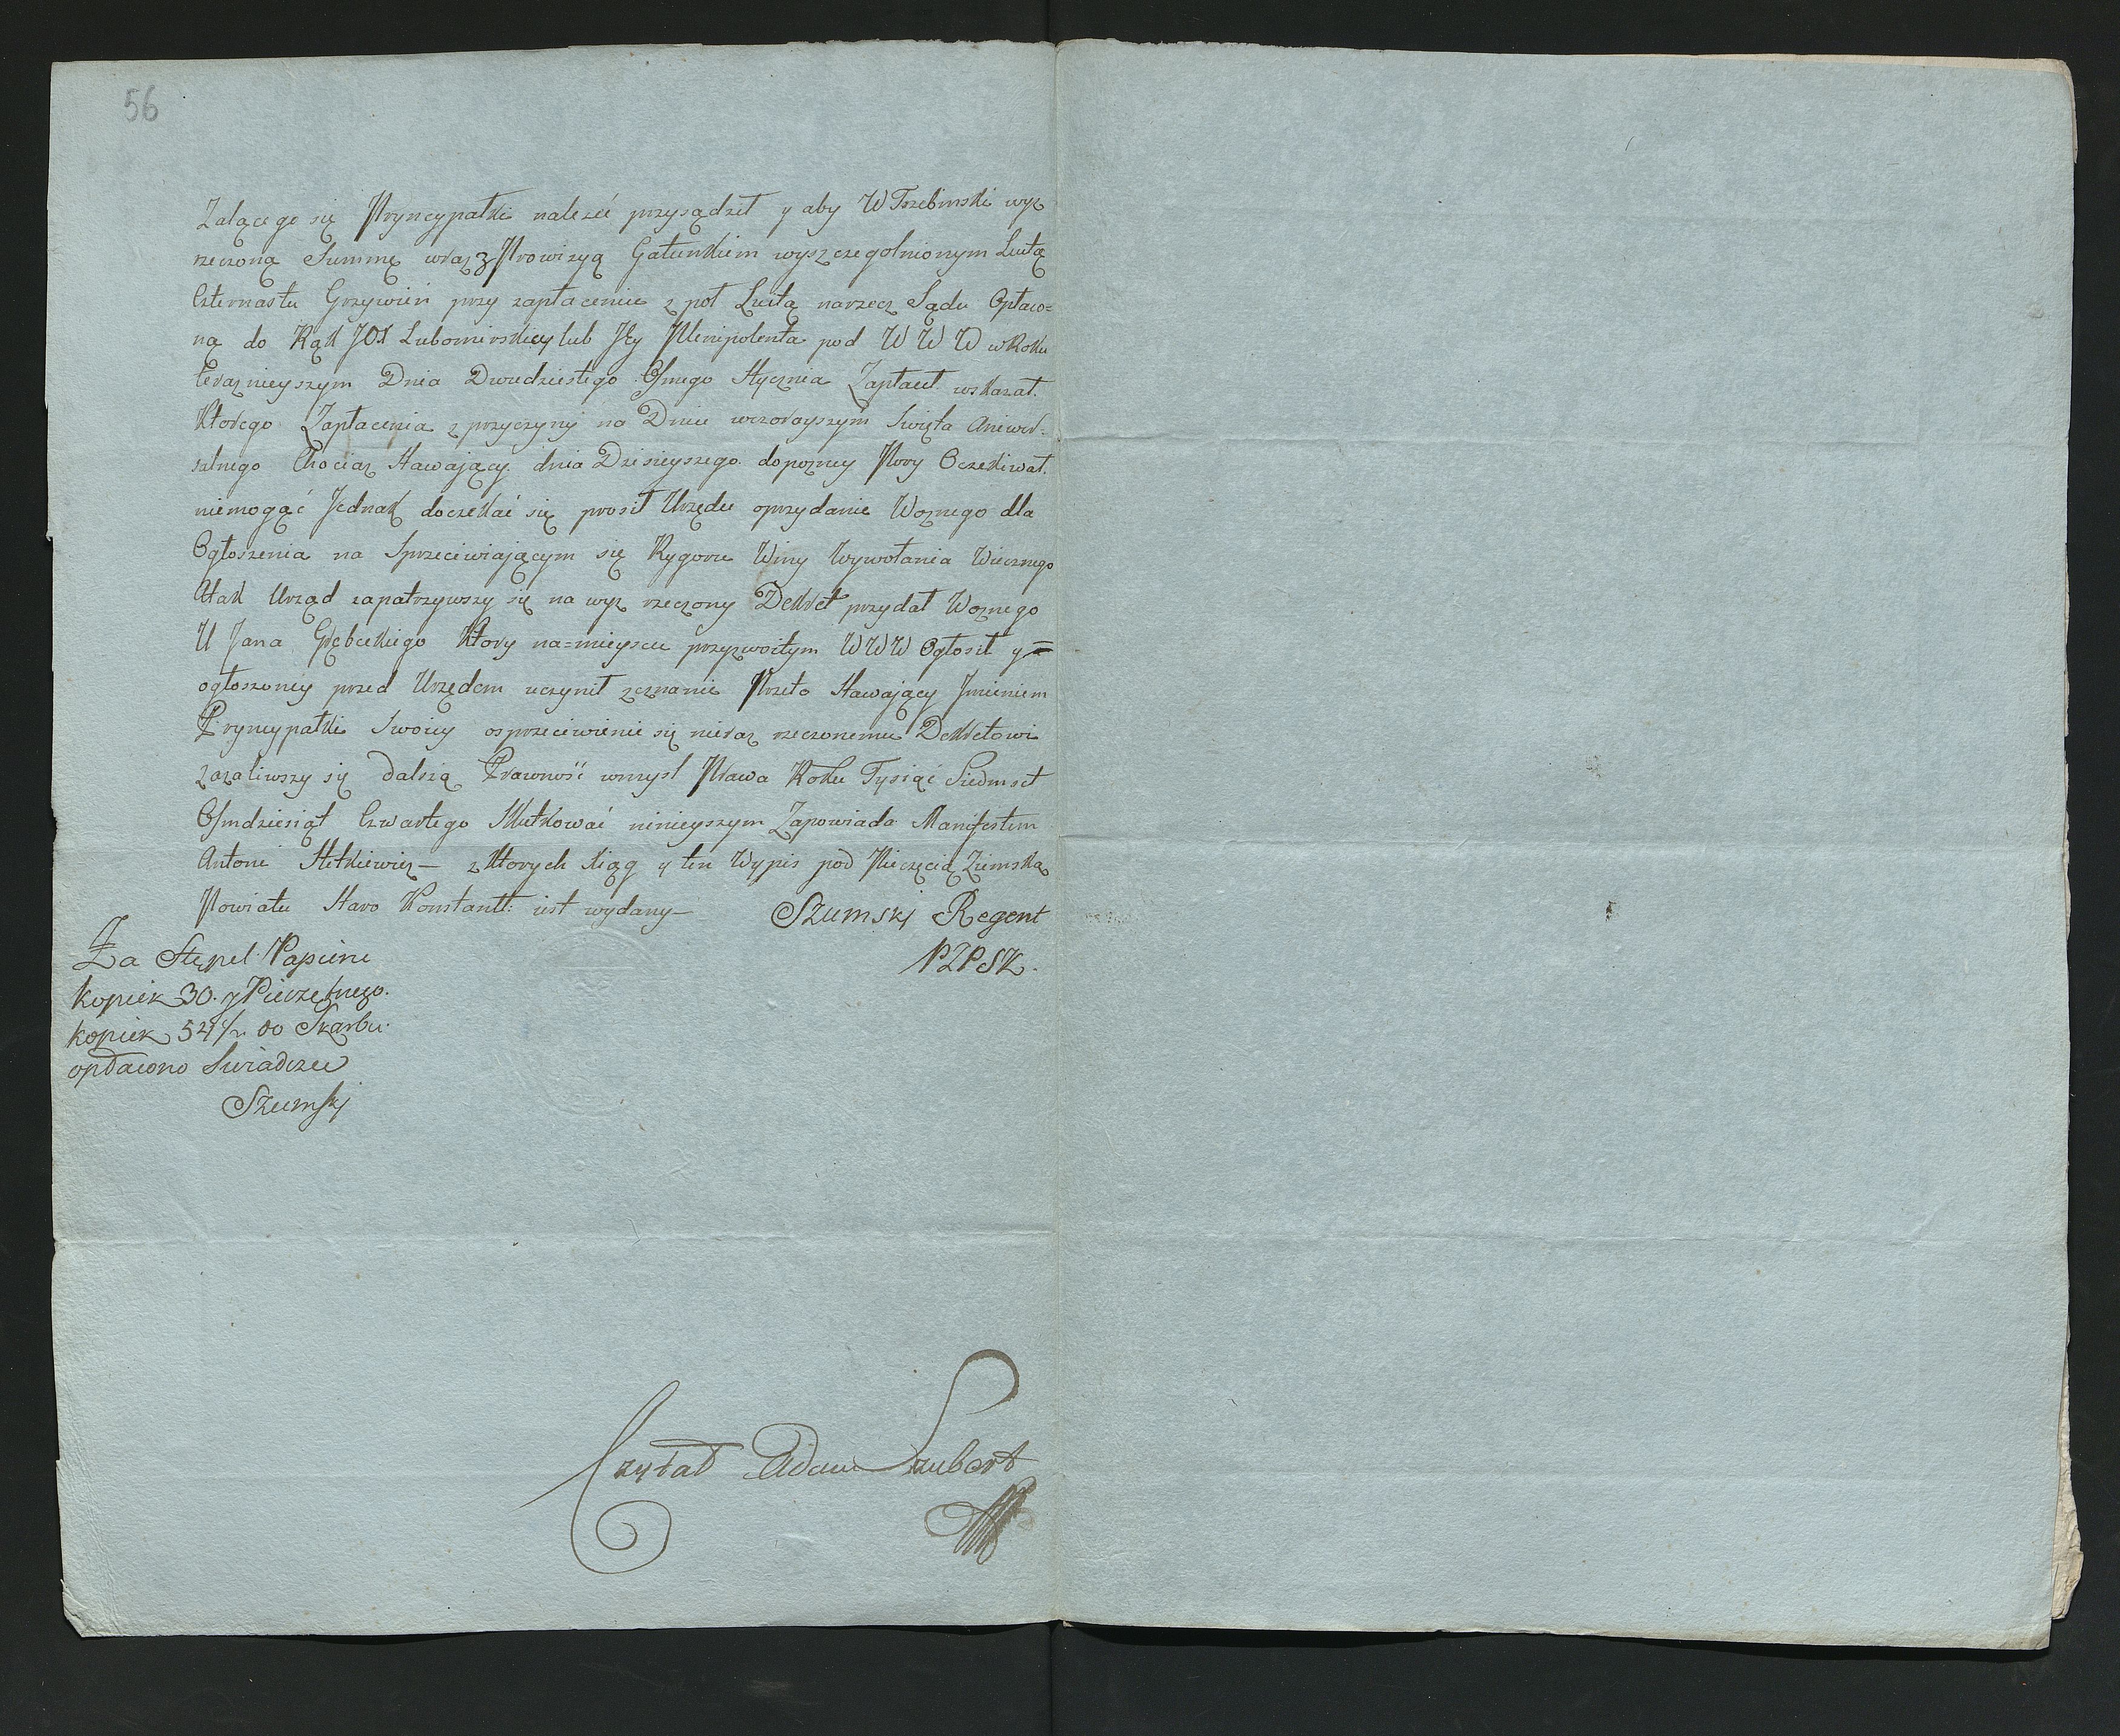 56
Zalącego się Pryncypałki należeć przysądził y aby W Trzebinski wyz
rzeczoną Summę wraz z Prowizyą Gatunkiem wyszczegolnionym Luitą
Czternastu Grzywień przy zapłacenie z pot Luitą narzecz Sądu Opłaco=
ną do Rąk JOX Lubomirskiey lub Jey Plenipotenta pod W W W w Roku
teraznieyszym Dnia Dwudziestego Osmego Stycznia Zapłacił wskazał.
Ktorego Zapłacenia z przyczyny na Dniu wczorayszym Swięta Aniwer=
salnego Chociaz Stawaiący dnia Dzisieyszego dopozney Pory Oczekiwał.
niemogąć Jednak doczekać się prosił Urzędu oprzydanie Woznego dla
Ogłoszenia na Sprzeciwiaiącym się Rygoru Winy Wywołania Wiecznego
Atak Urząd zapatrzywszy się na wyz rzeczony Dekret przydał Woznego
U Jana Grębeckiego Ktory na=mieyscu przyzwoitym WWW Ogłosił y=
ogłoszoney przed Urzędem uczynił zeznanie Przeto Stawaiący Jmieniem
Pryncypałki Swoiey osprzeciwienie się nieraz rzeczonemu Dekretowi
zazaliwszy się dalszą Prawność wmysl Prawa Roku Tysiąć Siedmset
Osmdziesiąt Czwartego Skutkować ninieyszym Zapowiada Manifestem
Antoni Stetkiewicz — z Ktorych Xiąg y ten Wypis pod Pieczęcią Ziemską
Powiatu Staro Konstantt: iest wydany —
Szumski Regent
PZPSK.
Za Stępel Papieru
kopiek 30. y Pieczętnego.
kopiek 54 1/2 do Skarbu
opłacono Swiadczę
Szumski
Czytał Adam Szubert